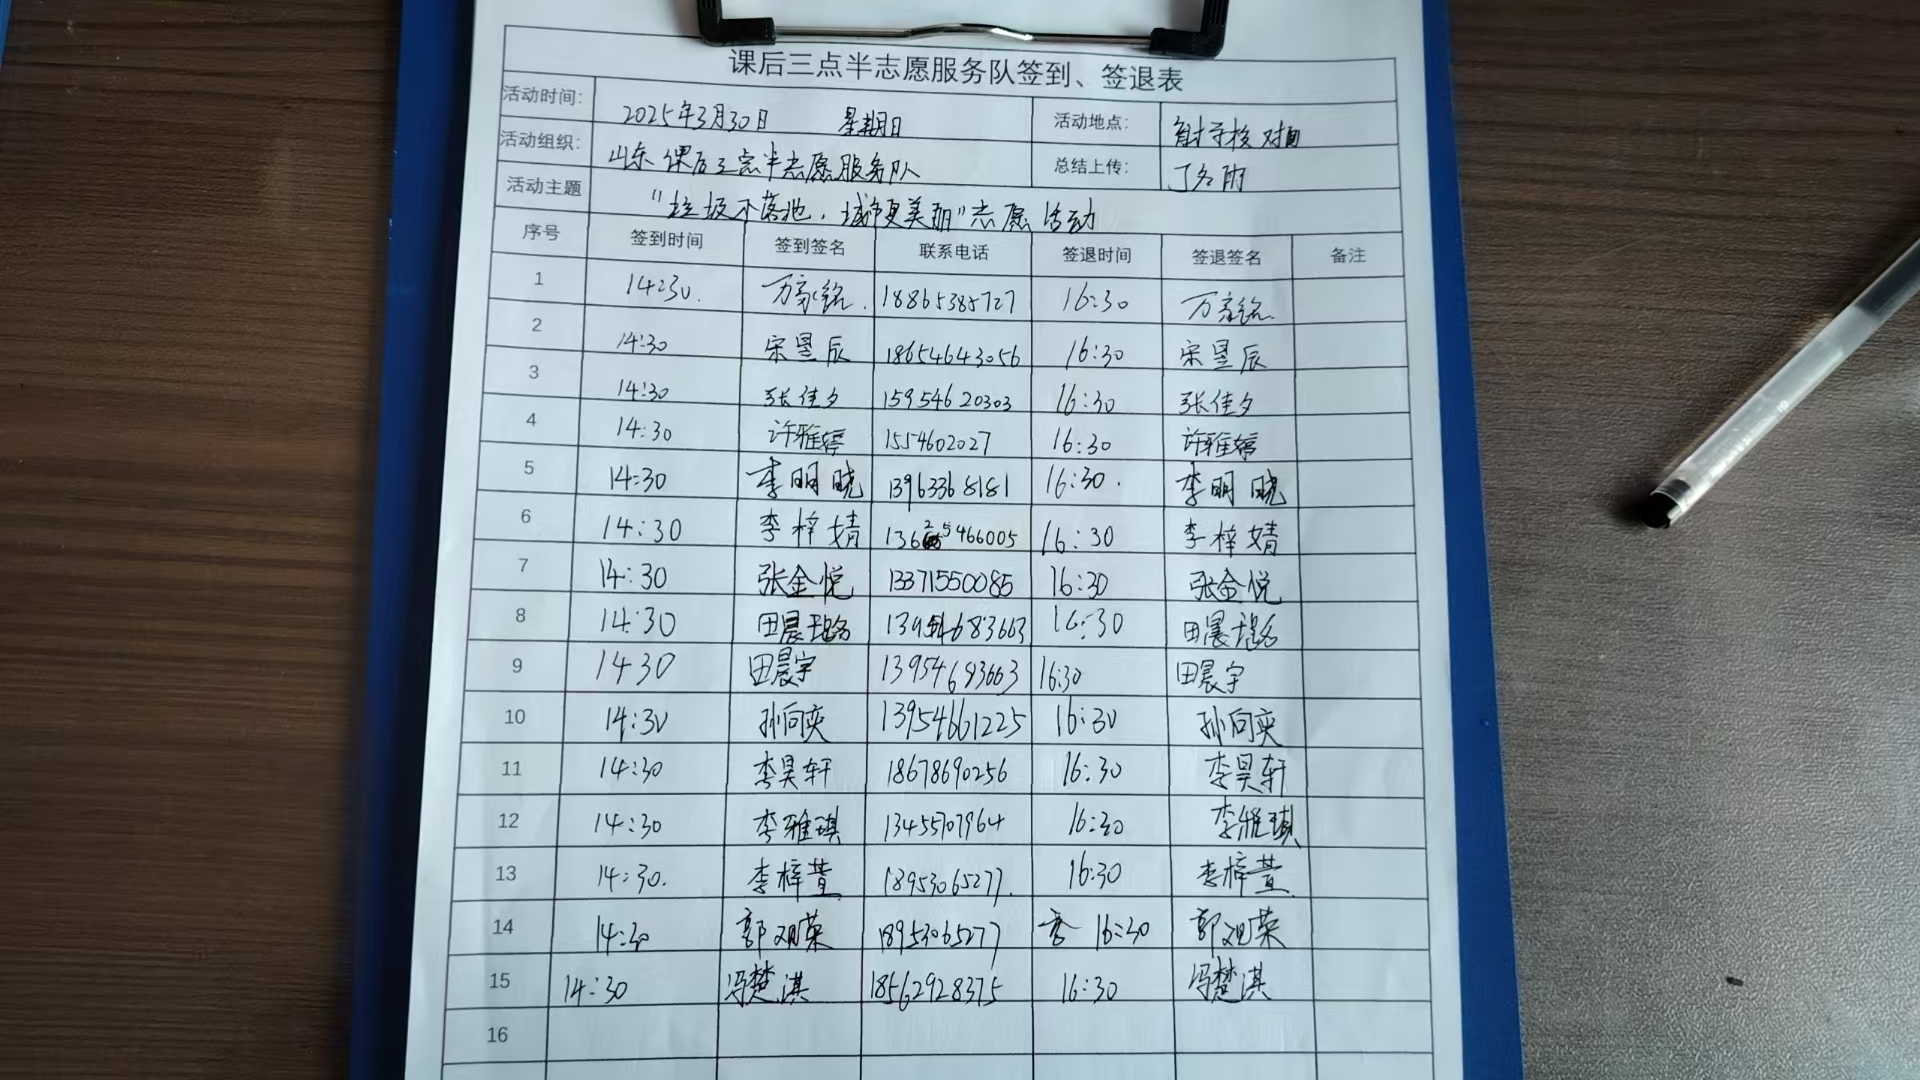 课后三点半志愿服务队签到、签退表
活动时间: 2025年3月30日 星期日 活动地点: 学校对面
活动组织: 山东课后三点半志愿服务队 总结上传: 丁名雨
活动主题 "垃圾不落地,城市更美丽"志愿活动
序号 签到时间 签到签名 联系电话 签退时间 签退签名 备注
1 14:30. 万家铭. 18865385727 16:30 万家铭.
2 14:30 宋昱辰 18654643056 16:30 宋昱辰
3 14:30 张佳夕 15954620303 16:30 张佳夕
4 14:30 许雅婷 1554602027 16:30 许雅婷
5 14:30 李明晓 13963368181 16:30. 李明晓
6 14:30 李梓婧 13625466005 16:30 李梓婧
7 14:30 张金悦 13371550085 16:30 张金悦
8 14:30 田晨璐 13954683663 16:30 田晨璐
9 1430 田晨宇 13954693663 16:30 田晨宇
10 14:30 孙向奕 13954661225 16:30 孙向奕
11 14:30 李昊轩 18678690256 16:30 李昊轩
12 14:30 李雅琪 13455707964 16:30 李雅琪
13 14:30. 李梓萱 18953065277. 16:30 李梓萱
14 14:30 郭观荣 18953065277 李 16:30 郭观荣
15 14:30 冯楚淇 18562928375 16:30 冯楚淇
16